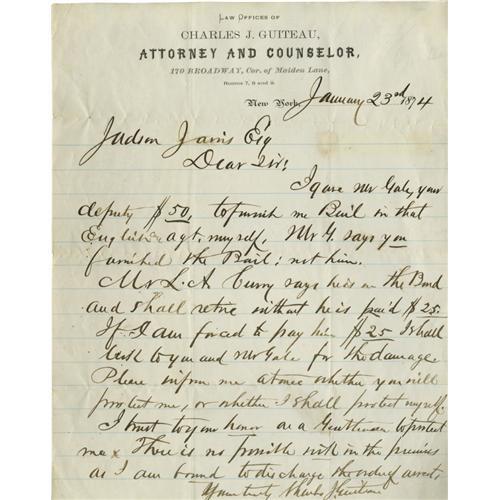 LAW OFFICES OF
CHARLES J. GUITEAU,
ATTORNEY AND COUNSELOR,
170 BROADWAY, Cor. of Maiden Lane,
Rooms 7, 8 and 9.
New York, January 23rd 1874
Judson Jarvis Esq
Dear Sir:
I gave Mr Gale, your
deputy $50, to furnish me Bail in that
agt. myself. Mr G. says you
furnished the Bail; not him.
Mr L. A. Curry says he is on the Bond
and shall retire without he is paid $25.
If I am forced to pay him $25 I shall
look to you and Mr Gale for the damage.
Please inform me at once whether you will
protect me, or whether I shall protect myself.
I trust to your honor as a Gentleman to protect
me. There is no possible risk in the premises
as I am bound to discharge the order of arrest.
Yours truly Charles J Guiteau